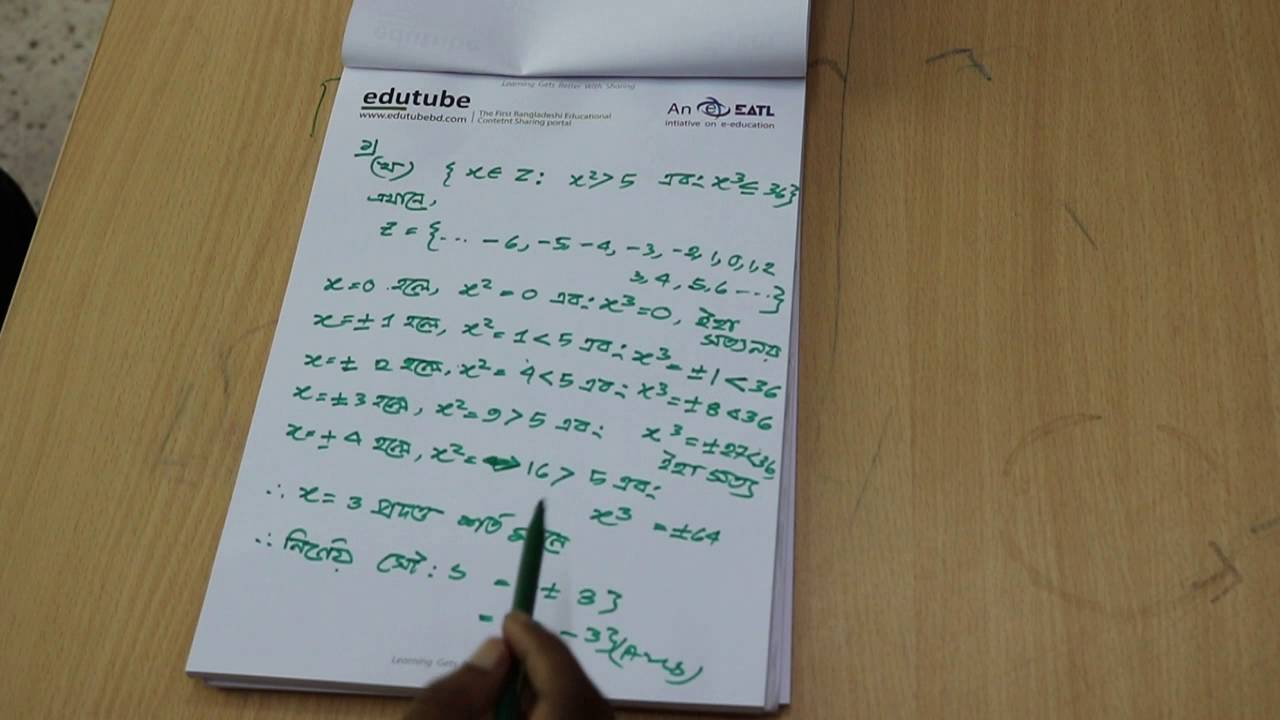 Learning Gets Better With Sharing
edutube
www.edutubebd.com
The First Bangladeshi Educational
Contetnt Sharing portal
An e EATL
intiative on e-education
১।
(খ) { x ∈ Z : x² > 5 এবং x³ ≤ 36}
এখানে,
Z = {... -6, -5, -4, -3, -2, 1, 0, 1, 2
3, 4, 5, 6 ...}
x=0 হলে, x² = 0 এবং x³=0, ইহা
সত্য নয়
x=±1 হলে, x² = 1<5 এবং x³ = ±1 < 36
x=± 2 হলে, x² = 4<5 এবং x³ = ±8 <36
x=±3 হলে, x² = 9 > 5 এবং x³ = ±27<36,
ইহা সত্য
x=±4 হলে, x² = 16 > 5 এবং
x³ = ±64
∴ x = 3 প্রদত্ত শর্ত
∴ নির্ণেয় সেট: S = ± 3}
= -3}(Ans)
Learning Gets